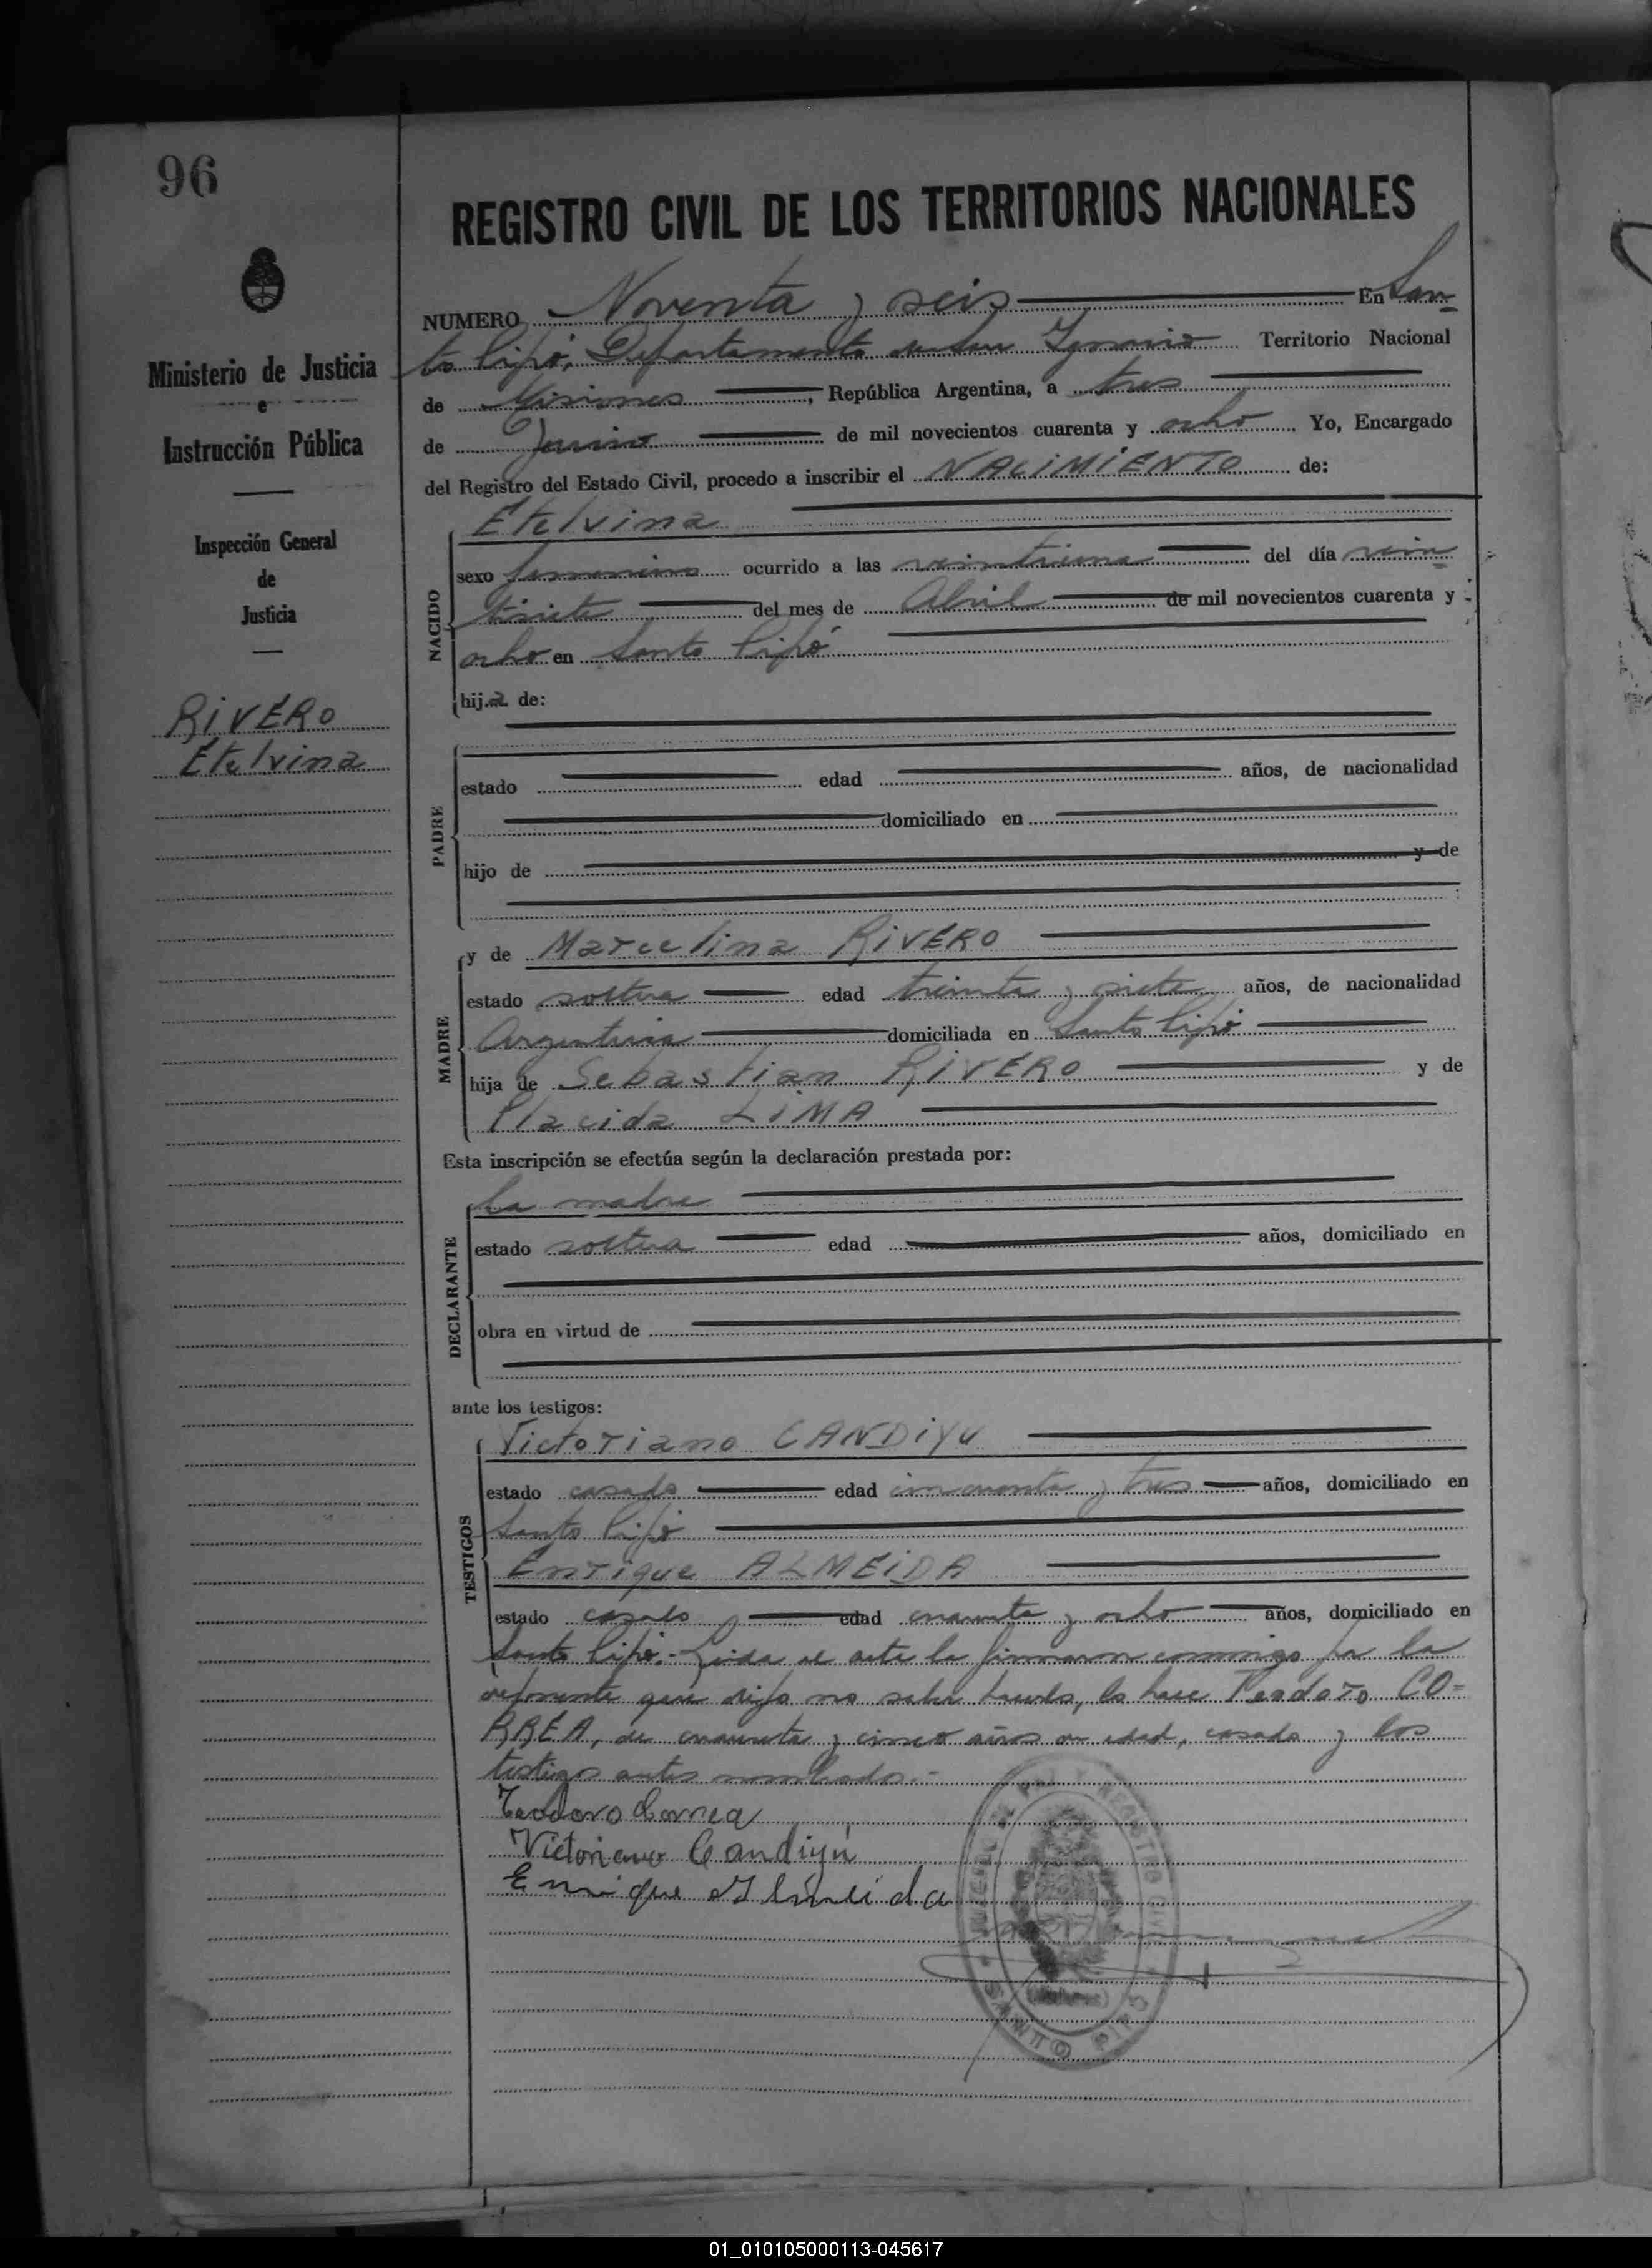 96
REGISTRO CIVIL DE LOS TERRITORIOS NACIONALES
Ministerio de Justicia
e
Instrucción Pública
Inspección General
de
Justicia
RiVERO
Etelvina
NUMERO Noventa y seis En San
to Pipó, Departamento de San Ignacio Territorio Nacional
de Misiones, República Argentina, a tres
de Junio de mil novecientos cuarenta y ocho Yo, Encargado
del Registro del Estado Civil, procedo a inscribir el NACiMiENTO de:
NACIDO
Etelvina
sexo femenino ocurrido a las veintiuna del día vein
tisiete del mes de Abril de mil novecientos cuarenta y
ocho en Santo Pipó
hija de:
PADRE
estado edad años, de nacionalidad
domiciliado en
hijo de y de
MADRE
y de Marcelina RiVERO
estado soltera edad treinta y siete años, de nacionalidad
Argentina domiciliada en Santo Pipó
hija de Sebastian RiVERO y de
Placida LiMA
Esta inscripción se efectúa según la declaración prestada por:
DECLARANTE
La madre
estado soltera edad años, domiciliado en
obra en virtud de
ante los testigos:
TESTIGOS
Victoriano CANDiYU
estado casado edad cincuenta y tres años, domiciliado en
Santo Pipó
Enrique ALMEiDA
estado casado edad cuarenta y ocho años, domiciliado en
Santo Pipó.- Leida el acta la firmaron conmigo por la
deponente que dijo no saber hacerlo, lo hace Teodoro CO=
RREA, de cuarenta y cinco años de edad, casado y los
testigos antes nombrados.-
Teodoro Correa
Victoriano Candiyú
Enrique Almeida
REGISTRO CIVIL
SANTO PIPO
01_010105000113-045617